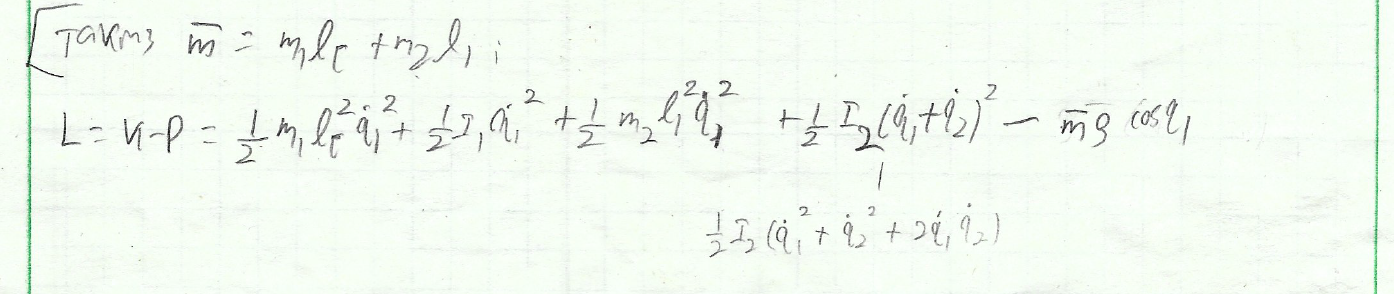 Taking m̄ = m₁l_c + m₂l₁ ;
L = K-P = 1/2 m₁l_c²q̇₁² + 1/2 I₁q̇₁² + 1/2 m₂l₁²q̇₁² + 1/2 I₂(q̇₁+q̇₂)² - m̄g cosq₁
1/2 I₂(q̇₁² + q̇₂² + 2q̇₁q̇₂)